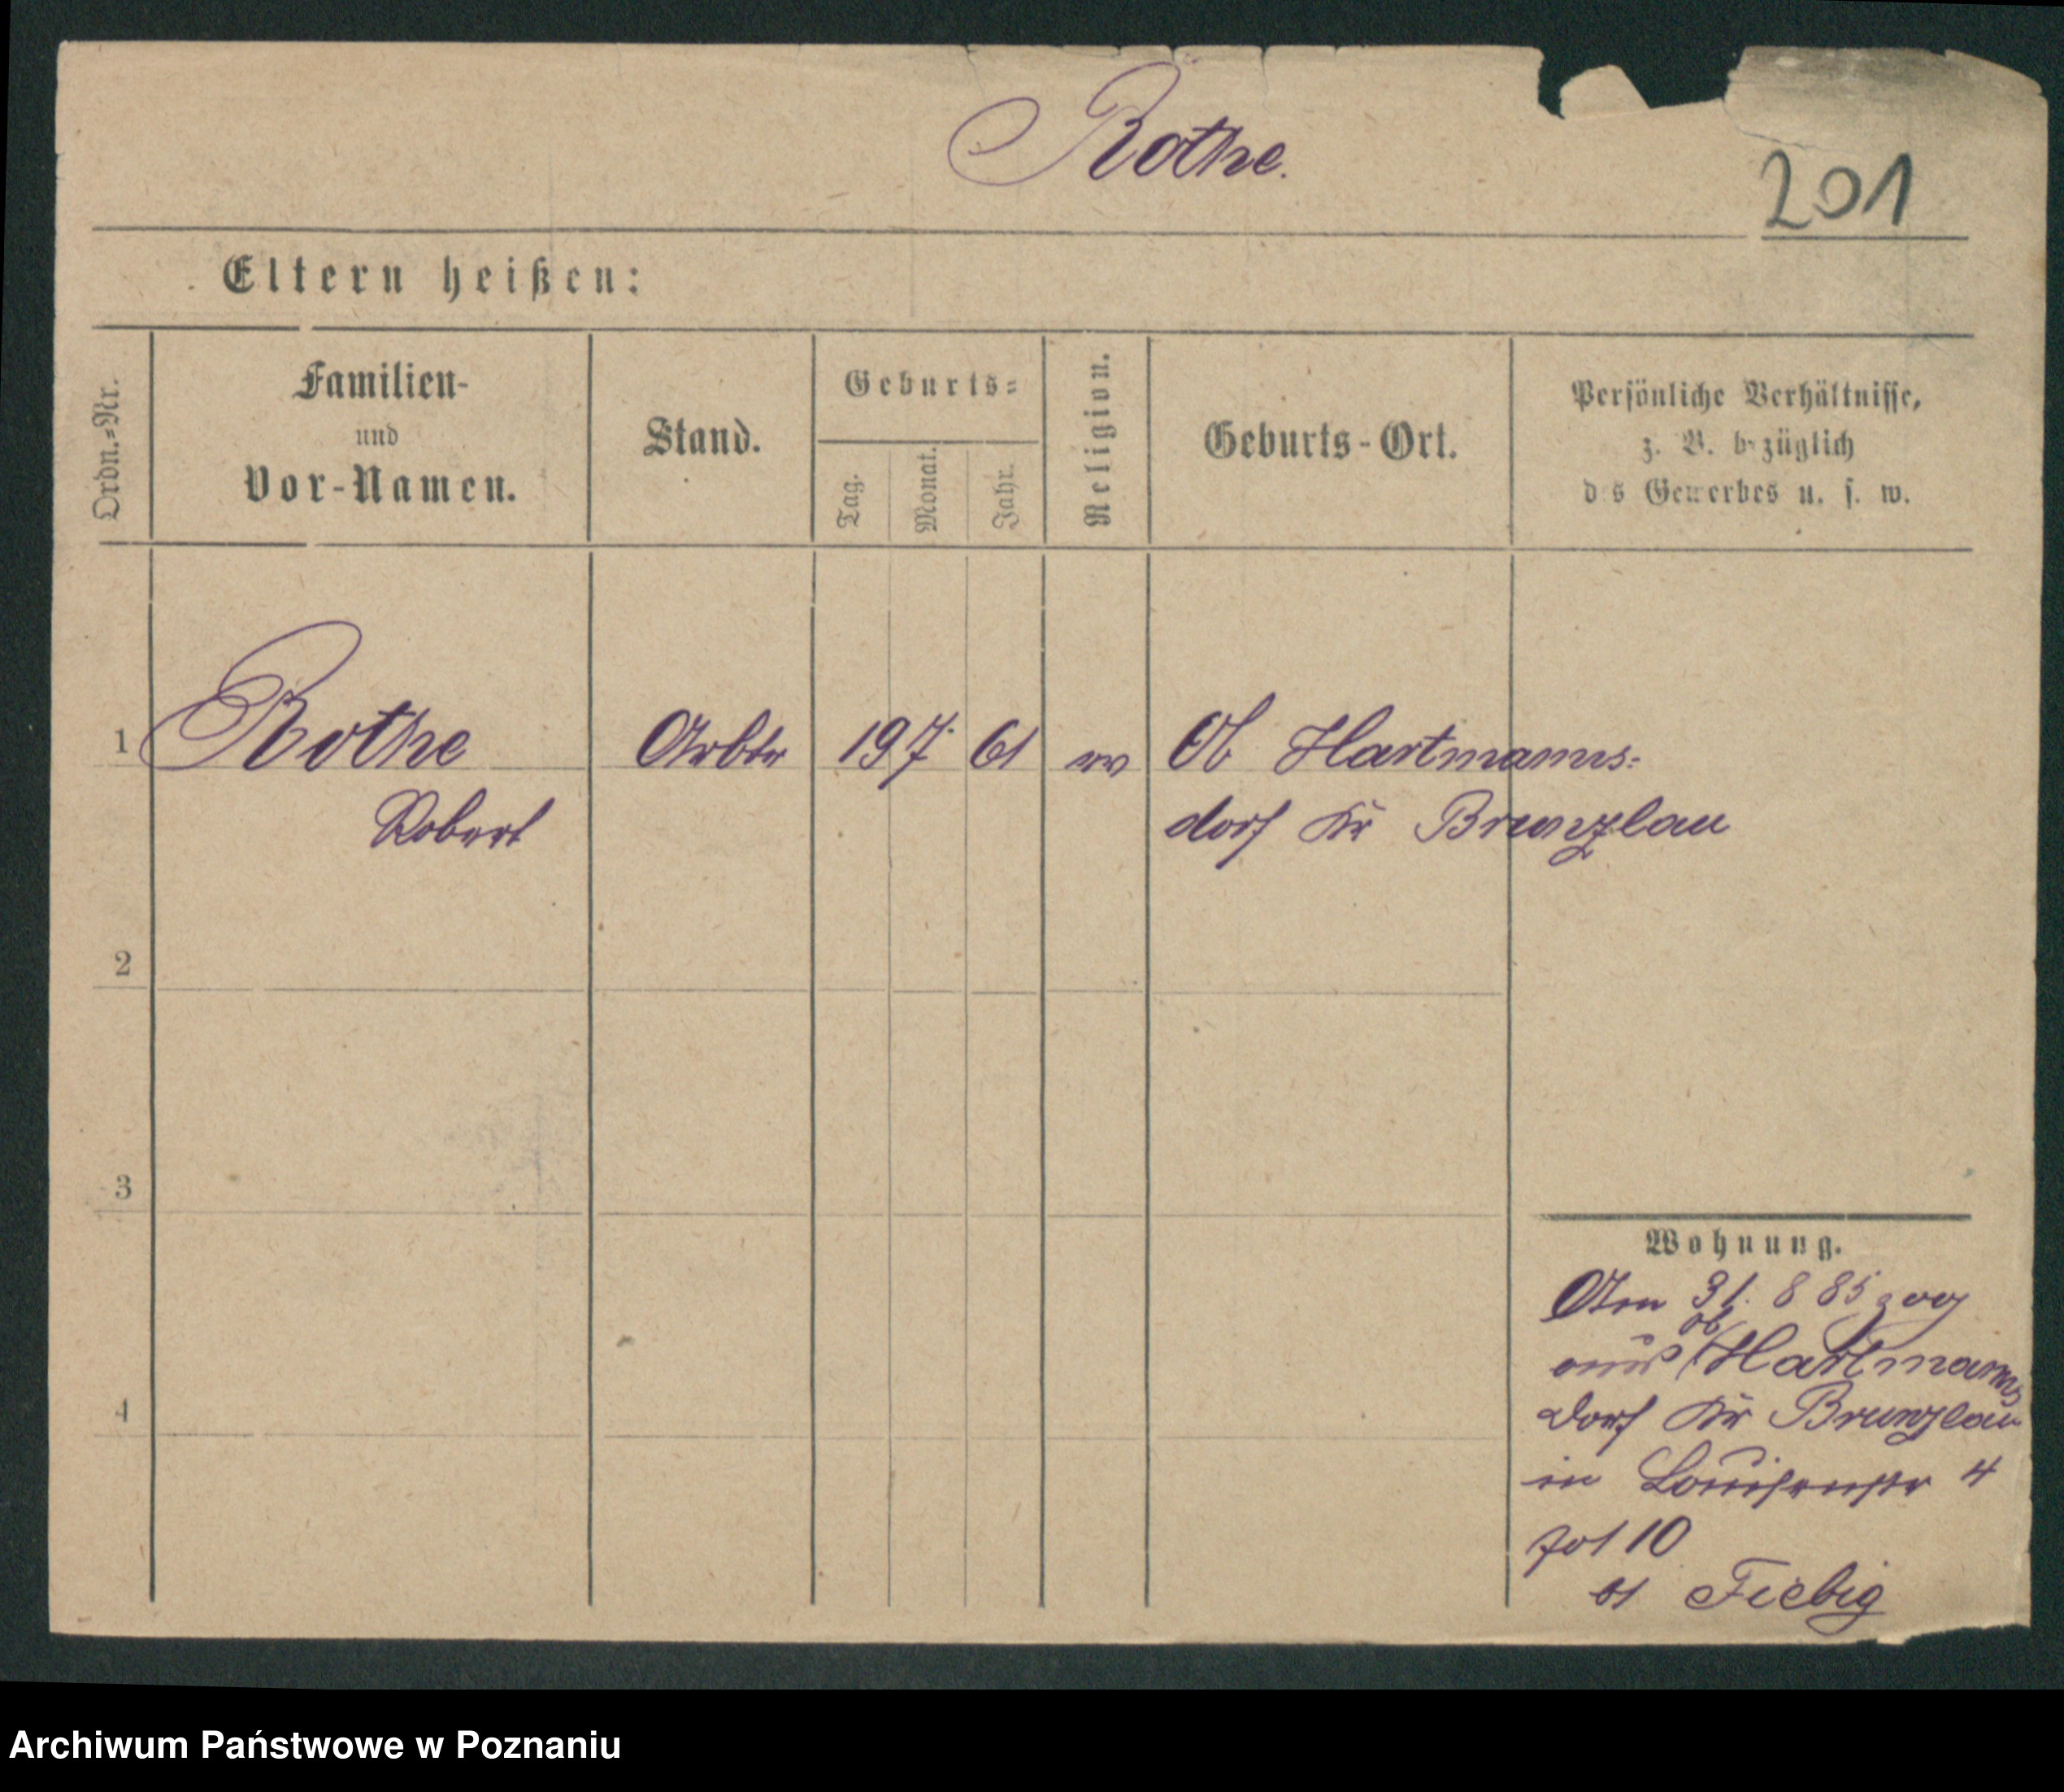 Rothe.
201
Eltern heißen:
Ordn.=Nr.
Familien-
und
Vor-Namen.
Stand.
Geburts=
Tag.
Monat.
Jahr.
Religion.
Geburts-Ort.
Persönliche Verhältnisse,
z. B. bezüglich
des Gewerbes u. s. w.
1 Rothe Arbtr 19 7. 61 ev Ob Hartmanns=
Robert dorf Kr Bunzlau
2
3
4
Wohnung.
Am 31. 8 85 zog
ob
aus Hartmanns
dorf Kr Bunzlau
in Louisenstr 4
10
Fiebig
Archiwum Państwowe w Poznaniu